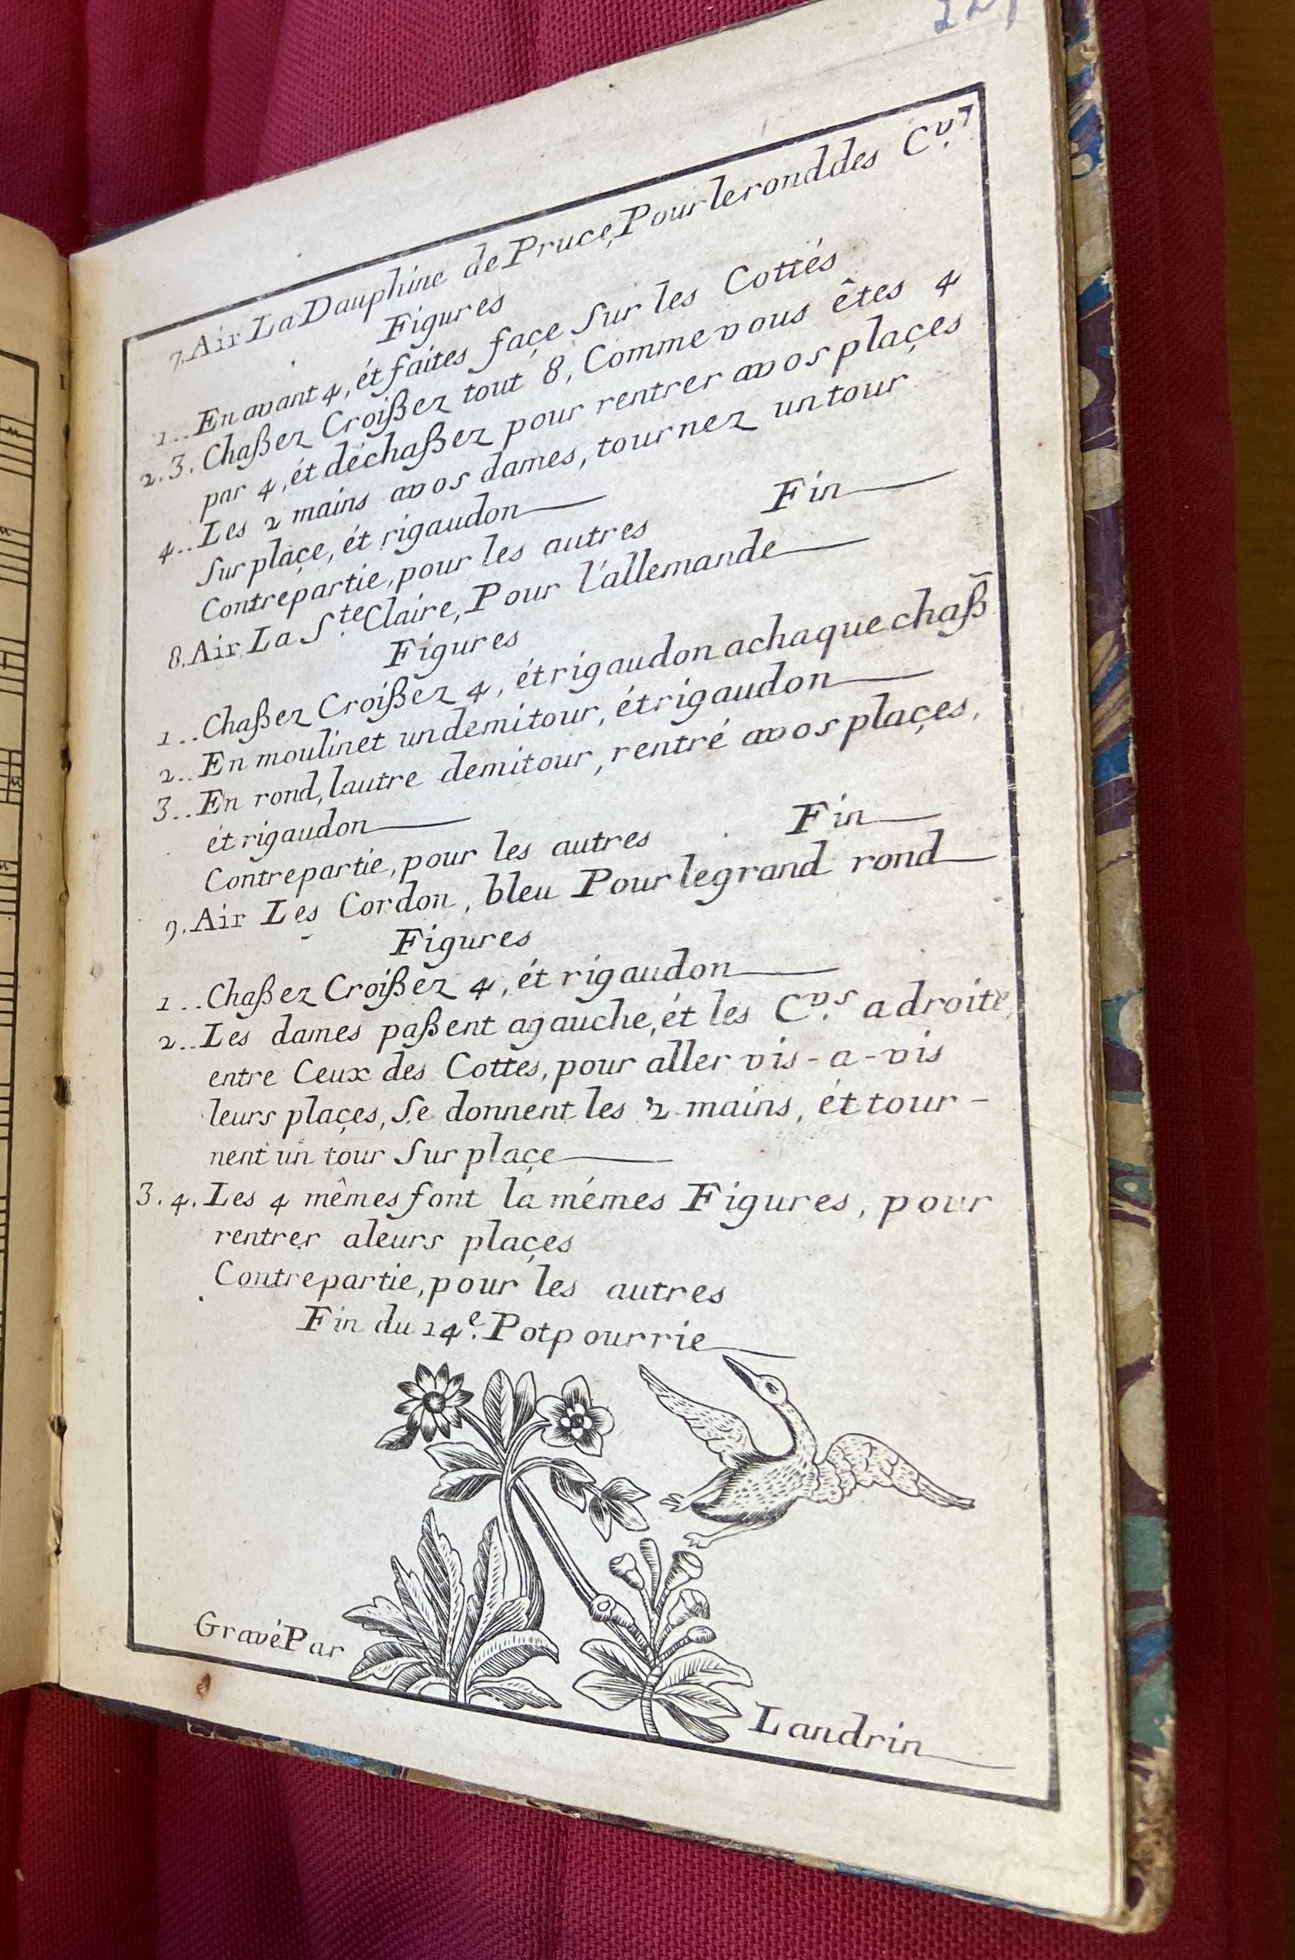 7. Air La Dauphine de Pruce, Pour le rond des C.vs
Figures
1.. En avant 4, ét faites façe sur les Cottés
2.3. Chaßez Croißez tout 8, Comme vous êtes 4
par 4, ét déchaßez pour rentrer avos plaçes
4.. Les 2 mains avos dames, tournez un tour
sur plaçe, ét rigaudon
Contrepartie, pour les autres Fin
8. Air La S.te Claire, Pour l'allemande
Figures
1.. Chaßez Croißez 4, ét rigaudon achaque chaß̃
2.. En moulinet un demi tour, ét rigaudon
3.. En rond, lautre demi tour, rentré avos plaçes,
ét rigaudon
Contrepartie, pour les autres Fin
9. Air Les Cordon, bleu Pour le grand rond
Figures
1.. Chaßez Croißez 4, ét rigaudon
2.. Les dames paßent agauche, ét les C.vs a droite,
entre Ceux des Cottes, pour aller vis-a-vis
leurs plaçes, se donnent les 2 mains, ét tour-
nent un tour sur plaçe
3.4. Les 4 mêmes font la mémes Figures, pour
rentrer aleurs plaçes
Contrepartie, pour les autres
Fin du 14.e Potpourrie
Gravé Par
Landrin